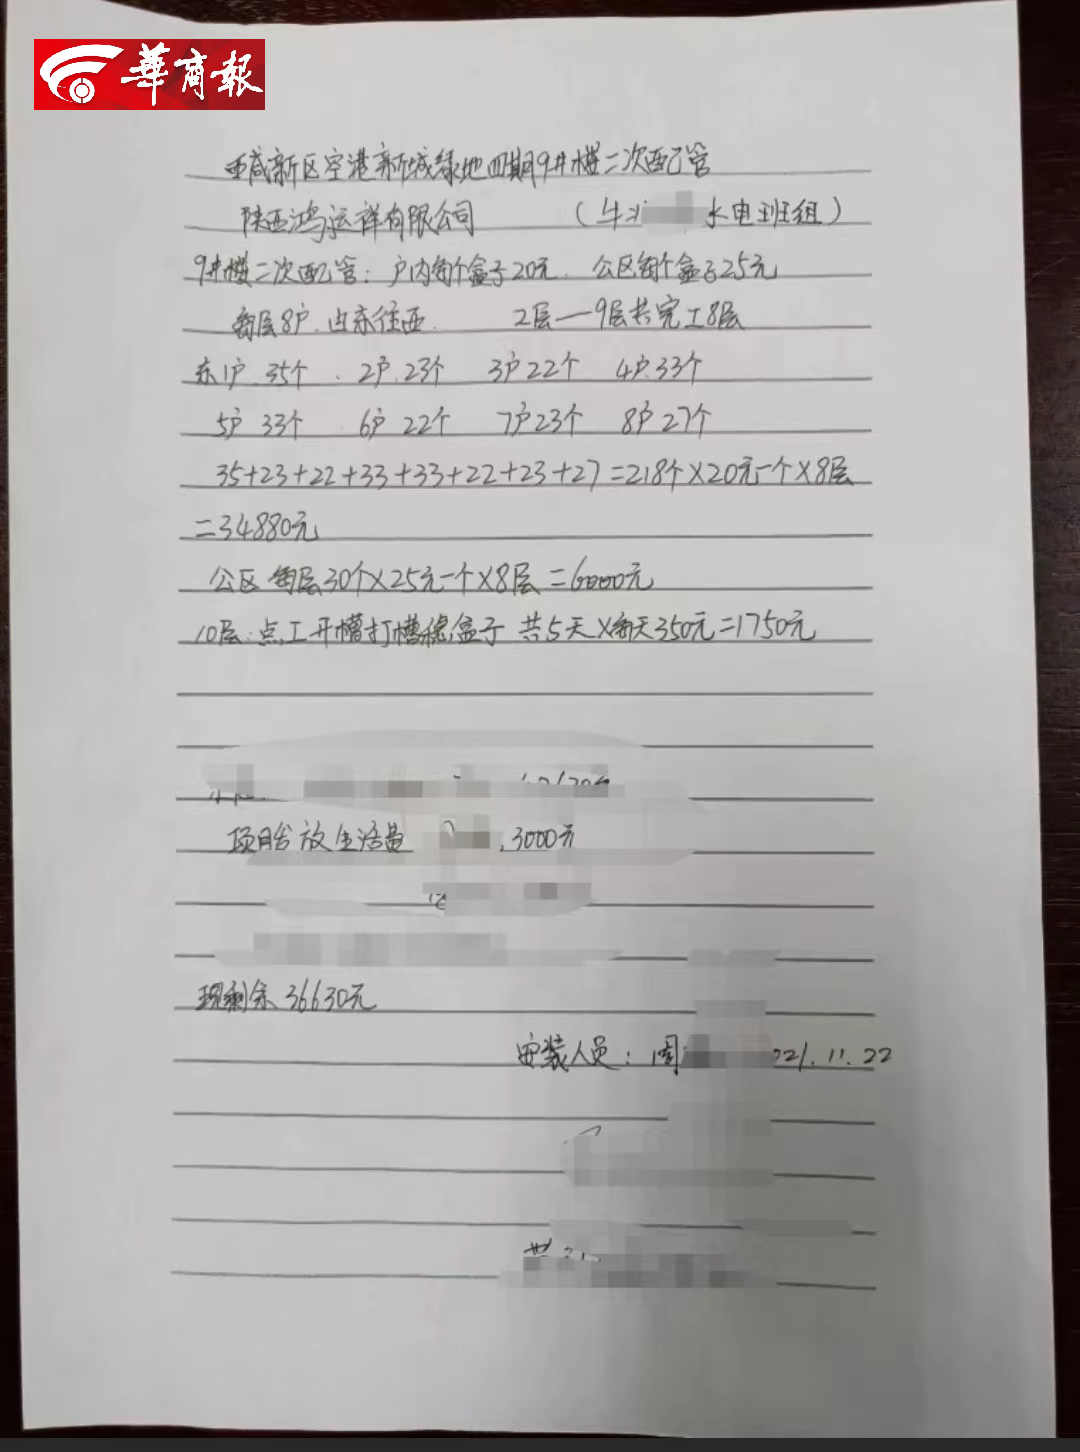 華商報
西咸新区空港新城绿地四期9井楼二次配管
陕西鸿运祥有限公司 (牛 水电班组)
9井楼二次配管: 户内每个盒子20元. 公区每个盒子25元
每层8户.由东往西. 2层一9层共完工8层
东1户.35个 . 2户.23个 3户22个 4户.33个
5户 33个 6户 22个 7户23个 8户27个
35+23+22+33+33+22+23+27=218个×20元一个×8层
=34880元
公区 每层30个×25元一个×8层 =6000元
10层:点工开槽打槽稳盒子 共5天×每天350元=1750元
项目台放生活费 .3000元
现剩余 36630元
安装人员: 周 21.11.22